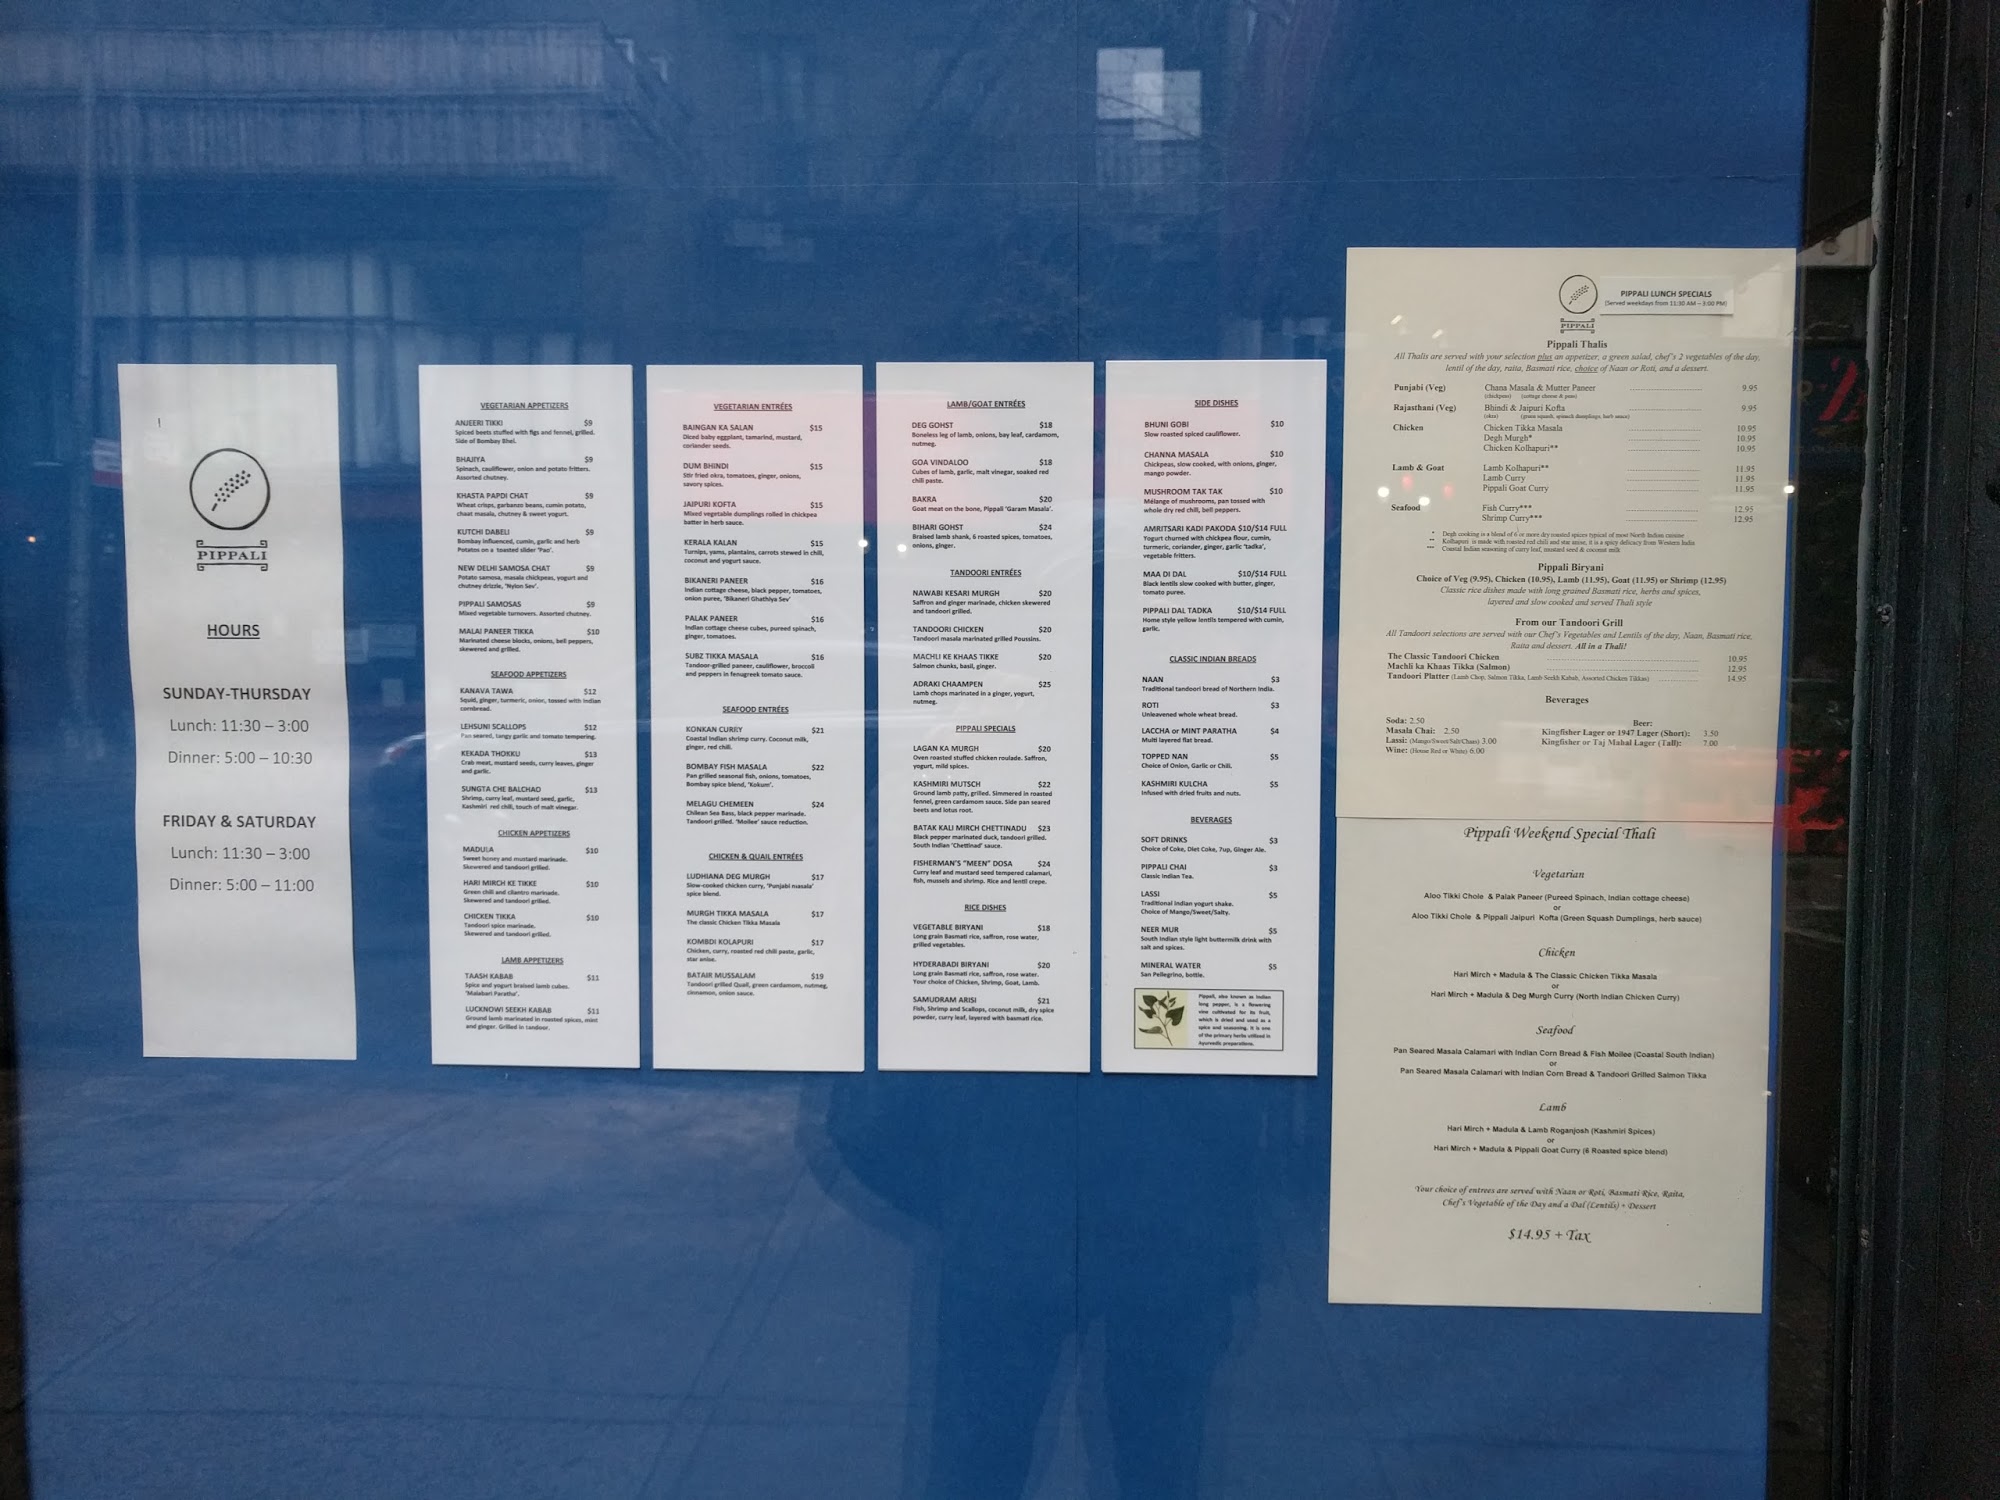 PIPPALI
HOURS
SUNDAY-THURSDAY
Lunch: 11:30 – 3:00
Dinner: 5:00 – 10:30
FRIDAY & SATURDAY
Lunch: 11:30 – 3:00
Dinner: 5:00 – 11:00
VEGETARIAN APPETIZERS
ANJEERI TIKKI $9
Spiced beets stuffed with figs and fennel, grilled.
Side of Bombay Bhel.
BHAJIYA $9
Spinach, cauliflower, onion and potato fritters.
Assorted chutney.
KHASTA PAPDI CHAT $9
Wheat crisps, garbanzo beans, cumin potato,
chaat masala, chutney & sweet yogurt.
KUTCHI DABELI $9
Bombay influenced, cumin, garlic and herb
Potatos on a toasted slider 'Pao'.
NEW DELHI SAMOSA CHAT $9
Potato samosa, masala chickpeas, yogurt and
chutney drizzle, 'Nylon Sev'.
PIPPALI SAMOSAS $9
Mixed vegetable turnovers. Assorted chutney.
MALAI PANEER TIKKA $10
Marinated cheese blocks, onions, bell peppers,
skewered and grilled.
SEAFOOD APPETIZERS
KANAVA TAWA $12
Squid, ginger, turmeric, onion, tossed with Indian
cornbread.
LEHSUNI SCALLOPS $12
Pan seared, tangy garlic and tomato tempering.
KEKADA THOKKU $13
Crab meat, mustard seeds, curry leaves, ginger
and garlic.
SUNGTA CHE BALCHAO $13
Shrimp, curry leaf, mustard seed, garlic,
Kashmiri red chili, touch of malt vinegar.
CHICKEN APPETIZERS
MADULA $10
Sweet honey and mustard marinade.
Skewered and tandoori grilled.
HARI MIRCH KE TIKKE $10
Green chili and cilantro marinade.
Skewered and tandoori grilled.
CHICKEN TIKKA $10
Tandoori spice marinade.
Skewered and tandoori grilled.
LAMB APPETIZERS
TAASH KABAB $11
Spice and yogurt braised lamb cubes.
'Malabari Paratha'.
LUCKNOWI SEEKH KABAB $11
Ground lamb marinated in roasted spices, mint
and ginger. Grilled in tandoor.
VEGETARIAN ENTRÉES
BAINGAN KA SALAN $15
Diced baby eggplant, tamarind, mustard,
coriander seeds.
DUM BHINDI $15
Stir fried okra, tomatoes, ginger, onions,
savory spices.
JAIPURI KOFTA $15
Mixed vegetable dumplings rolled in chickpea
batter in herb sauce.
KERALA KALAN $15
Turnips, yams, plantains, carrots stewed in chili,
coconut and yogurt sauce.
BIKANERI PANEER $16
Indian cottage cheese, black pepper, tomatoes,
onion puree, 'Bikaneri Ghathiya Sev'
PALAK PANEER $16
Indian cottage cheese cubes, pureed spinach,
ginger, tomatoes.
SUBZ TIKKA MASALA $16
Tandoor-grilled paneer, cauliflower, broccoli
and peppers in fenugreek tomato sauce.
SEAFOOD ENTRÉES
KONKAN CURRY $21
Coastal Indian shrimp curry. Coconut milk,
ginger, red chili.
BOMBAY FISH MASALA $22
Pan grilled seasonal fish, onions, tomatoes,
Bombay spice blend, 'Kokum'.
MELAGU CHEMEEN $24
Chilean Sea Bass, black pepper marinade.
Tandoori grilled. 'Moilee' sauce reduction.
CHICKEN & QUAIL ENTRÉES
LUDHIANA DEG MURGH $17
Slow-cooked chicken curry, 'Punjabi masala'
spice blend.
MURGH TIKKA MASALA $17
The classic Chicken Tikka Masala
KOMBDI KOLAPURI $17
Chicken, curry, roasted red chili paste, garlic,
star anise.
BATAIR MUSSALAM $19
Tandoori grilled Quail, green cardamom, nutmeg,
cinnamon, onion sauce.
LAMB/GOAT ENTRÉES
DEG GOHST $18
Boneless leg of lamb, onions, bay leaf, cardamom,
nutmeg.
GOA VINDALOO $18
Cubes of lamb, garlic, malt vinegar, soaked red
chili paste.
BAKRA $20
Goat meat on the bone, Pippali 'Garam Masala'.
BIHARI GOHST $24
Braised lamb shank, 6 roasted spices, tomatoes,
onions, ginger.
TANDOORI ENTRÉES
NAWABI KESARI MURGH $20
Saffron and ginger marinade, chicken skewered
and tandoori grilled.
TANDOORI CHICKEN $20
Tandoori masala marinated grilled Poussins.
MACHLI KE KHAAS TIKKE $20
Salmon chunks, basil, ginger.
ADRAKI CHAAMPEN $25
Lamb chops marinated in a ginger, yogurt,
nutmeg.
PIPPALI SPECIALS
LAGAN KA MURGH $20
Oven roasted stuffed chicken roulade. Saffron,
yogurt, mild spices.
KASHMIRI MUTSCH $22
Ground lamb patty, grilled. Simmered in roasted
fennel, green cardamom sauce. Side pan seared
beets and lotus root.
BATAK KALI MIRCH CHETTINADU $23
Black pepper marinated duck, tandoori grilled.
South Indian 'Chettinad' sauce.
FISHERMAN'S "MEEN" DOSA $24
Curry leaf and mustard seed tempered calamari,
fish, mussels and shrimp. Rice and lentil crepe.
RICE DISHES
VEGETABLE BIRYANI $18
Long grain Basmati rice, saffron, rose water,
grilled vegetables.
HYDERABADI BIRYANI $20
Long grain Basmati rice, saffron, rose water.
Your choice of Chicken, Shrimp, Goat, Lamb.
SAMUDRAM ARISI $21
Fish, Shrimp and Scallops, coconut milk, dry spice
powder, curry leaf, layered with basmati rice.
SIDE DISHES
BHUNI GOBI $10
Slow roasted spiced cauliflower.
CHANNA MASALA $10
Chickpeas, slow cooked, with onions, ginger,
mango powder.
MUSHROOM TAK TAK $10
Mélange of mushrooms, pan tossed with
whole dry red chili, bell peppers.
AMRITSARI KADI PAKODA $10/$14 FULL
Yogurt churned with chickpea flour, cumin,
turmeric, coriander, ginger, garlic 'tadka',
vegetable fritters.
MAA DI DAL $10/$14 FULL
Black lentils slow cooked with butter, ginger,
tomato puree.
PIPPALI DAL TADKA $10/$14 FULL
Home style yellow lentils tempered with cumin,
garlic.
CLASSIC INDIAN BREADS
NAAN $3
Traditional tandoori bread of Northern India.
ROTI $3
Unleavened whole wheat bread.
LACCHA or MINT PARATHA $4
Multi layered flat bread.
TOPPED NAN $5
Choice of Onion, Garlic or Chili.
KASHMIRI KULCHA $5
Infused with dried fruits and nuts.
BEVERAGES
SOFT DRINKS $3
Choice of Coke, Diet Coke, 7up, Ginger Ale.
PIPPALI CHAI $3
Classic Indian Tea.
LASSI $5
Traditional Indian yogurt shake.
Choice of Mango/Sweet/Salty.
NEER MUR $5
South Indian style light buttermilk drink with
salt and spices.
MINERAL WATER $5
San Pellegrino, bottle.
Pippali, also known as Indian
long pepper, is a flowering
vine cultivated for its fruit,
which is dried and used as a
spice and seasoning. It is one
of the primary herbs utilized in
Ayurvedic preparations.
PIPPALI
PIPPALI LUNCH SPECIALS
(Served weekdays from 11:30 AM – 3:00 PM)
Pippali Thalis
All Thalis are served with your selection plus an appetizer, a green salad, chef's 2 vegetables of the day,
lentil of the day, raita, Basmati rice, choice of Naan or Roti, and a dessert.
Punjabi (Veg) Chana Masala & Mutter Paneer 9.95
(chickpeas) (cottage cheese & peas)
Rajasthani (Veg) Bhindi & Jaipuri Kofta 9.95
(okra) (green squash, spinach dumplings, herb sauce)
Chicken Chicken Tikka Masala 10.95
Degh Murgh* 10.95
Chicken Kolhapuri** 10.95
Lamb & Goat Lamb Kolhapuri** 11.95
Lamb Curry 11.95
Pippali Goat Curry 11.95
Seafood Fish Curry*** 12.95
Shrimp Curry*** 12.95
* Degh cooking is a blend of 6 or more dry roasted spices typical of most North Indian cuisine
** Kolhapuri is made with roasted red chili and star anise, it is a spicy delicacy from Western India
*** Coastal Indian seasoning of curry leaf, mustard seed & coconut milk
Pippali Biryani
Choice of Veg (9.95), Chicken (10.95), Lamb (11.95), Goat (11.95) or Shrimp (12.95)
Classic rice dishes made with long grained Basmati rice, herbs and spices,
layered and slow cooked and served Thali style
From our Tandoori Grill
All Tandoori selections are served with our Chef's Vegetables and Lentils of the day, Naan, Basmati rice,
Raita and dessert. All in a Thali!
The Classic Tandoori Chicken 10.95
Machli ka Khaas Tikka (Salmon) 12.95
Tandoori Platter (Lamb Chop, Salmon Tikka, Lamb Seekh Kabab, Assorted Chicken Tikkas) 14.95
Beverages
Soda: 2.50
Masala Chai: 2.50
Lassi: (Mango/Sweet/Salt/Chaas) 3.00
Wine: (House Red or White) 6.00
Beer:
Kingfisher Lager or 1947 Lager (Short): 3.50
Kingfisher or Taj Mahal Lager (Tall): 7.00
Pippali Weekend Special Thali
Vegetarian
Aloo Tikki Chole & Palak Paneer (Pureed Spinach, Indian cottage cheese)
or
Aloo Tikki Chole & Pippali Jaipuri Kofta (Green Squash Dumplings, herb sauce)
Chicken
Hari Mirch + Madula & The Classic Chicken Tikka Masala
or
Hari Mirch + Madula & Deg Murgh Curry (North Indian Chicken Curry)
Seafood
Pan Seared Masala Calamari with Indian Corn Bread & Fish Moilee (Coastal South Indian)
or
Pan Seared Masala Calamari with Indian Corn Bread & Tandoori Grilled Salmon Tikka
Lamb
Hari Mirch + Madula & Lamb Roganjosh (Kashmiri Spices)
or
Hari Mirch + Madula & Pippali Goat Curry (6 Roasted spice blend)
Your choice of entrees are served with Naan or Roti, Basmati Rice, Raita,
Chef's Vegetable of the Day and a Dal (Lentils) + Dessert
$14.95 + Tax